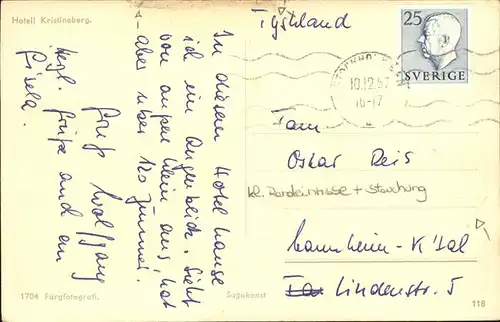 Hotell Kristineberg.
In diesem Hotel hause
ich im Augenblick. Sieht
von außen klein aus, hat
aber über 120 Zimmer.
Gruß Wolfgang
Herzl. Grüße auch an
Gisela.
1704 Färgfotografi.
Sagokonst
Tyskland
25
SVERIGE
STOCKHOLM
10.12.57
16-17
Fam
Oskar Reis
kl. Randeinrisse + Stauchung
Mannheim-K'tal
Lindenstr. 5
118